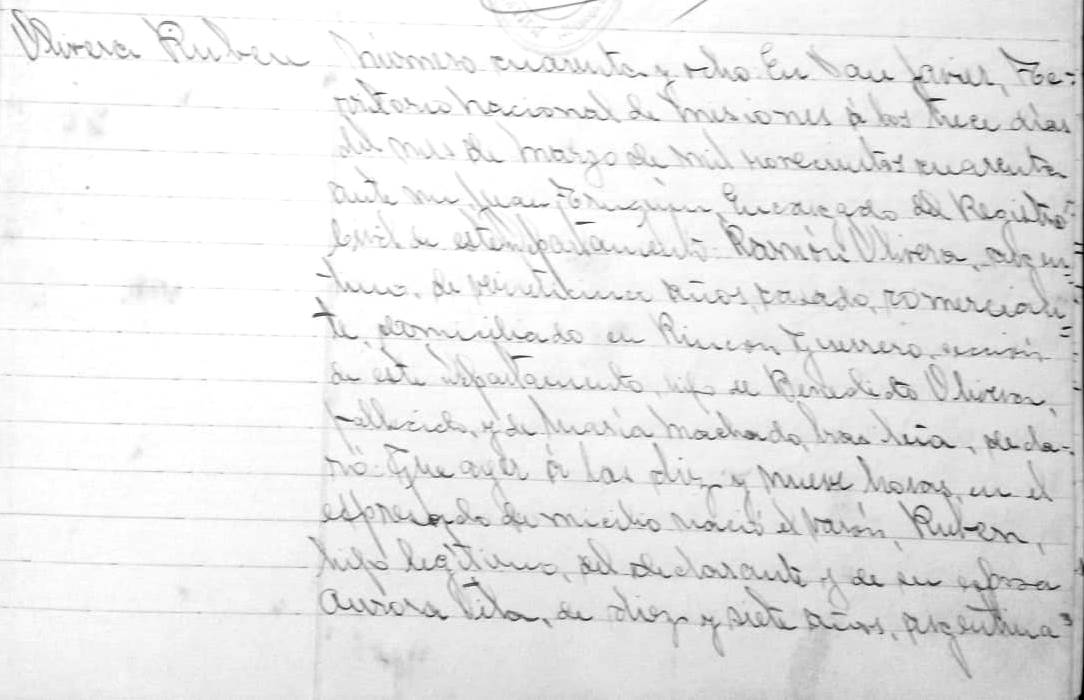 Olivera Ruben Número cuarenta y ocho En San Javier, Te=
rritorio nacional de Misiones á los trece dias
del mes de Marzo de mil novecientos cuarenta
ante mi Juan Encargado del Registro
Civil de este departamento Ramón Olivera, argen=
tino, de veinticinco años, casado, comercian=
te, domiciliado en Rincon Guerrero, sección
de este departamento, hijo de Benedicto Olivera,
fallecido, y de Maria Machado, brasileña, decla=
ró: Que ayer á las diez y nueve horas, en el
expresado domicilio nació el varón, Ruben,
hijo legitimo, del declarante y de su esposa
Aurora de diez y siete años, argentina